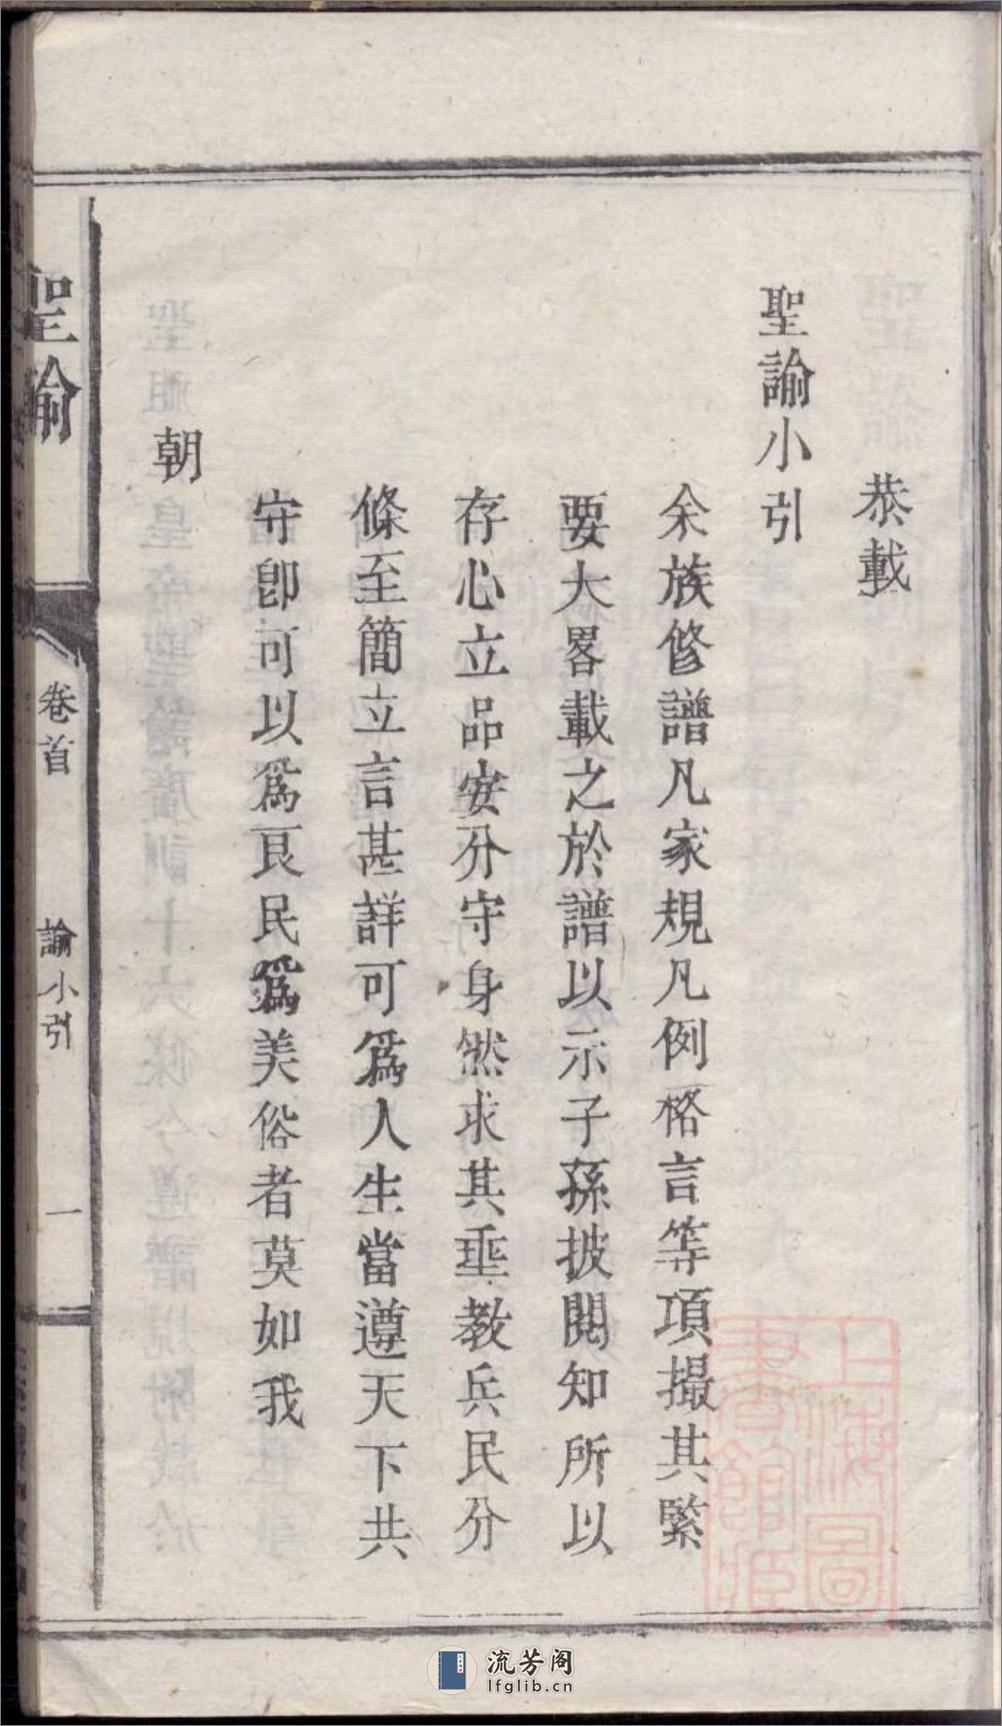 恭載
聖諭小引
余族修譜凡家規凡例格言等項撮其緊
要大畧載之於譜以示子孫披閱知所以
存心立品安分守身然求其垂教兵民分
條至簡立言甚詳可爲人生當遵天下共
守卽可以爲良民爲美俗者莫如我
朝
聖諭
卷首
諭小引
一
上海圖
書館藏
流芳阁
lfglib.cn